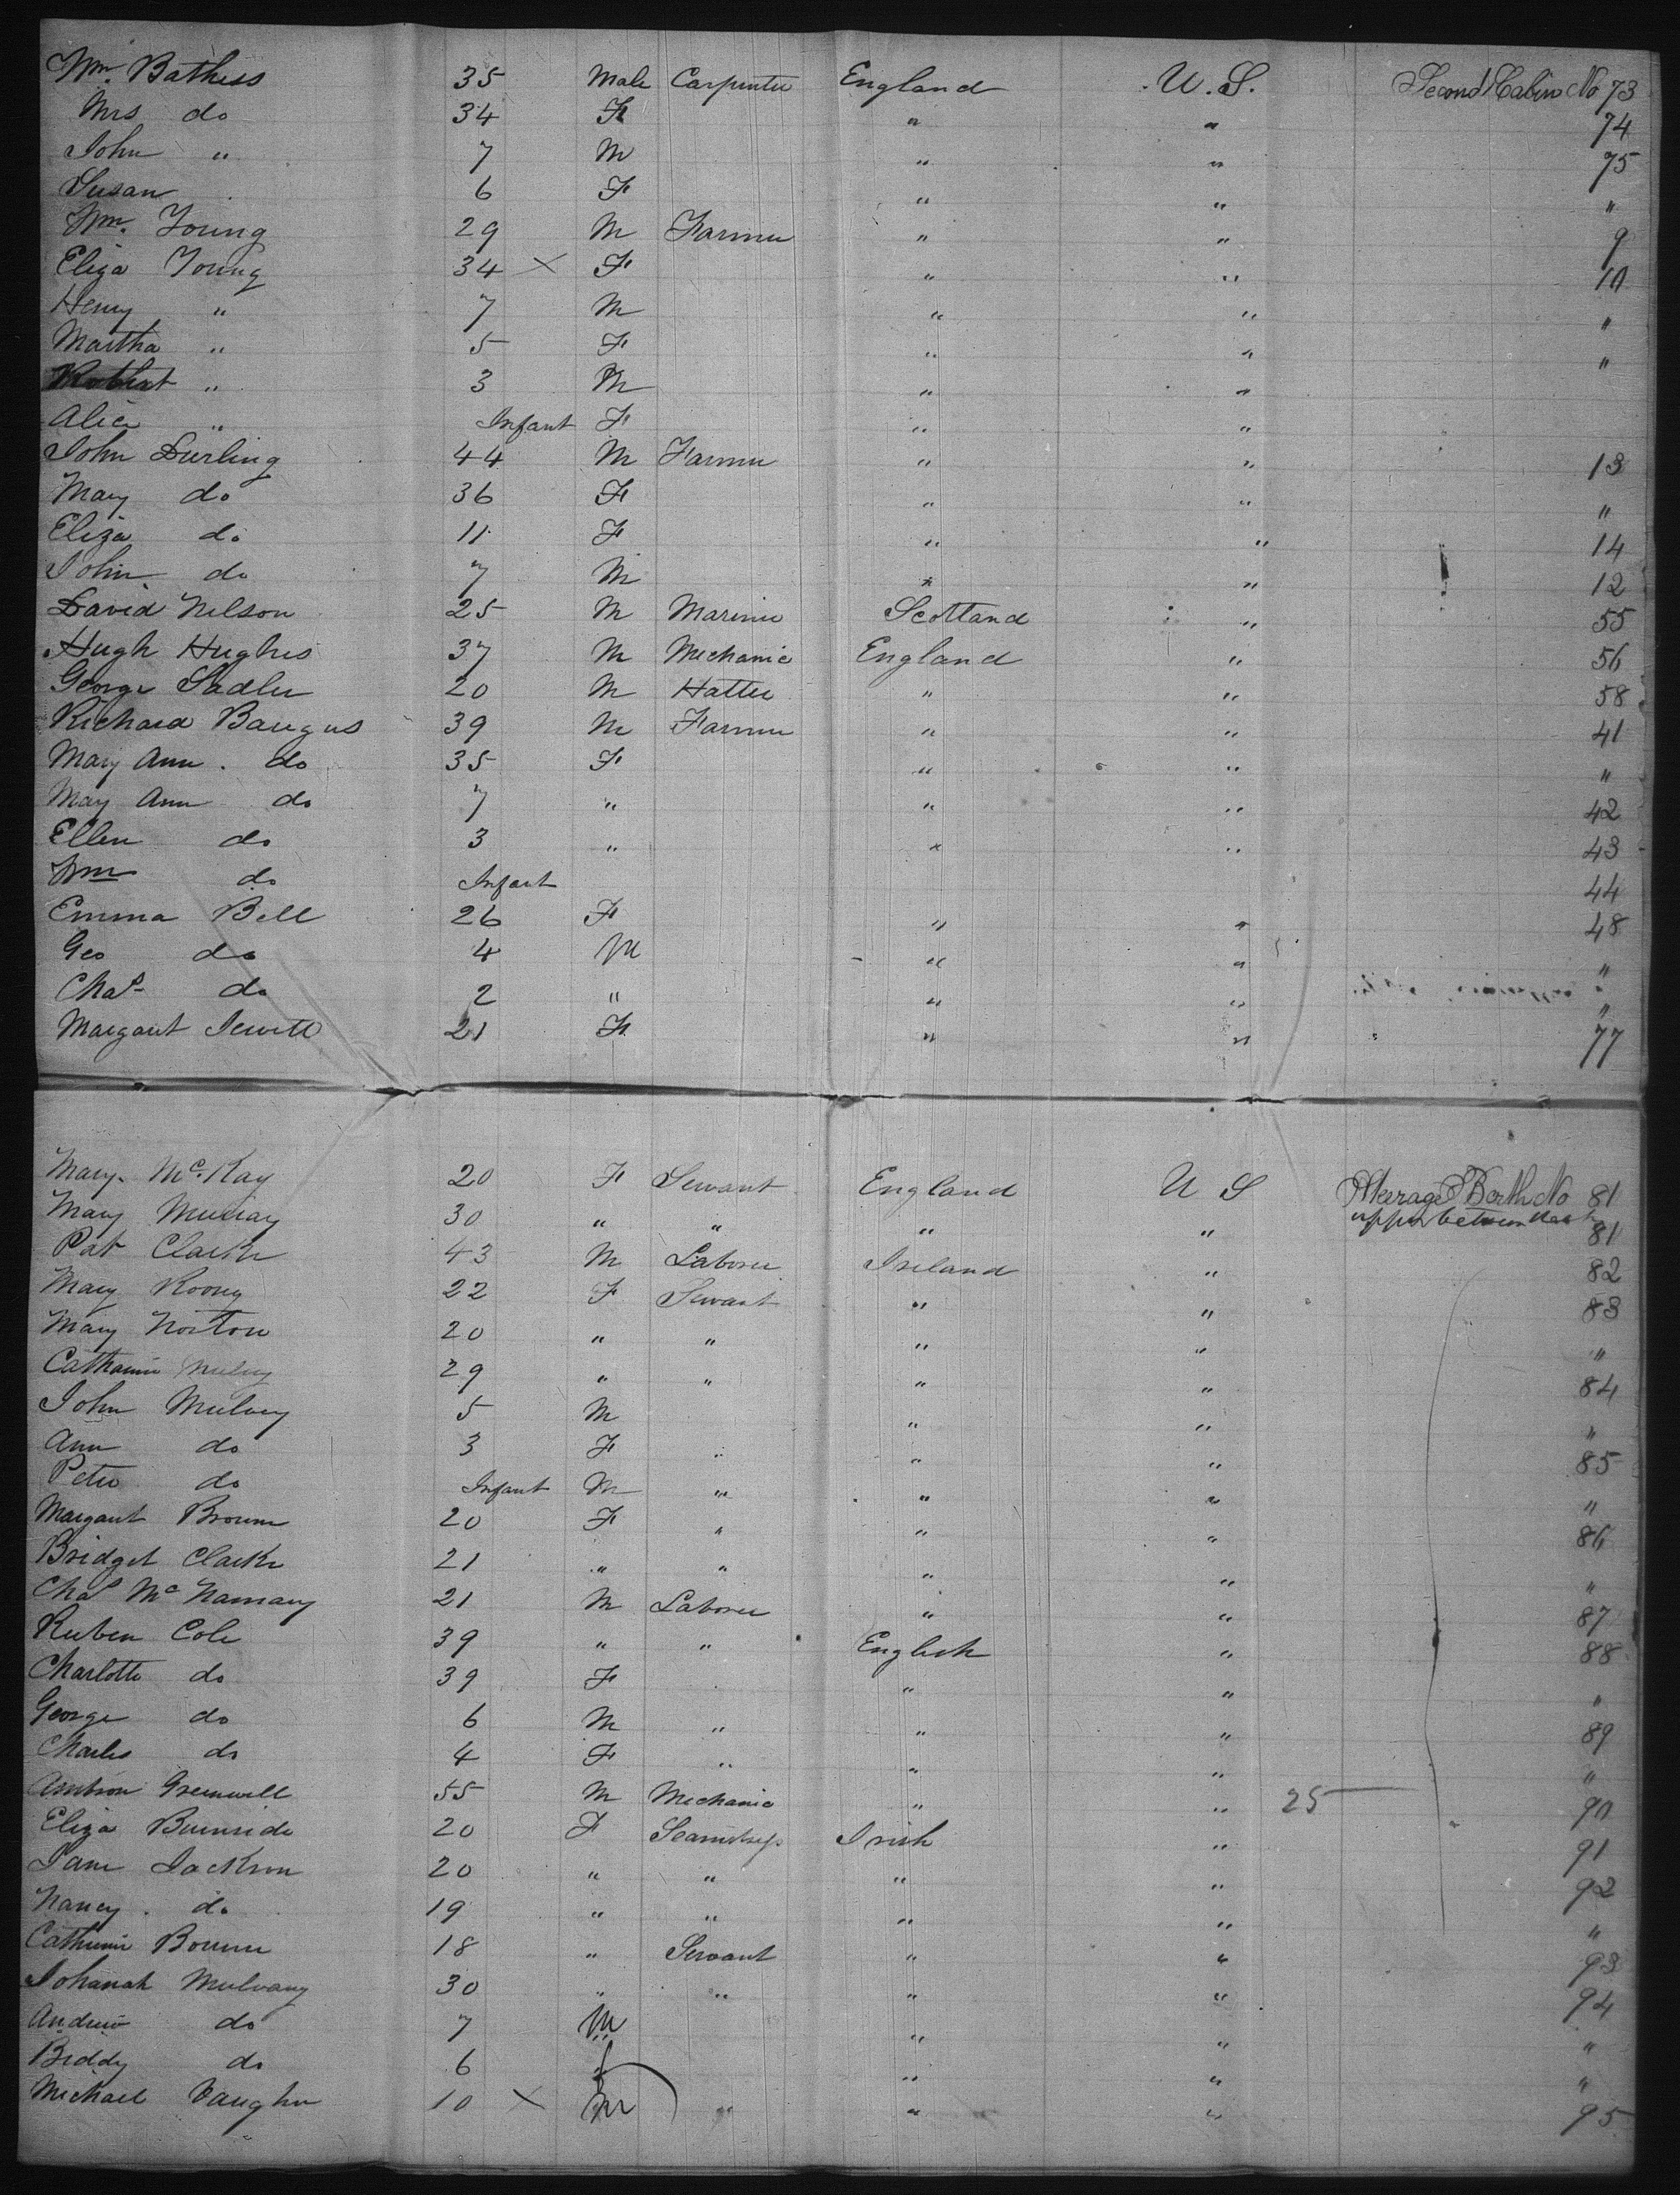 Wm. Bathess 35 Male Carpenter England U.S. Second Cabin No 73
Mrs do 34 F " " 74
John " 7 M " " 75
Susan 6 F " " "
Wm. Young 29 M Farmer " " 9
Eliza Young 34 X F " " 10
Henry " 7 M " " "
Martha " 5 F " " "
Robert " 3 M " "
Alice " Infant F " "
John Durling 44 M Farmer " " 13
Mary do 36 F " " "
Eliza do 11 F " " 14
John do 7 M " " 12
David Nelson 25 M Mariner Scotland " 55
Hugh Hughes 37 M Mechanic England " 56
George Sadler 20 M Hatter " " 58
Richard Baugus 39 M Farmer " " 41
Mary Ann do 35 F " " "
May Ann do 7 " " " 42
Ellen do 3 " " " 43
Wm do Infant 44
Emma Bell 26 F " " 48
Geo do 4 M " " "
Chas do 2 " " " "
Margaret Jewitt 21 F " " 77
Mary McKay 20 F Servant England U S Steerage Berth No 81
upper between deck
Mary Murray 30 " " " " 81
Pat Clarke 43 M Laborer Ireland " 82
Mary Roony 22 F Servant " " 83
Mary Norton 20 " " " " "
Catharine Mulvey 29 " " " " 84
John Mulvey 5 M " " "
Ann do 3 F " " " 85
Peter do Infant M " " " "
Margaret Brown 20 F " " " 86
Bridget Clarke 21 " " " " "
Chas McNamary 21 M Laborer " " 87
Ruben Cole 39 " " English " 88
Charlotte do 39 F " " "
George do 6 M " " " 89
Charles do 4 F " " " "
Greenwell 55 M Mechanic " " 25 90
Eliza Burnside 20 F Seamstress Irish " 91
Jane Jackson 20 " " " " 92
Nancy do 19 " " " " "
Catherine 18 " Servant " " 93
Johanah Mulvany 30 " " " " 94
Andrew do 7 M " " "
Biddy do 6 f " " "
Michael Vaughn 10 X M " " " 95